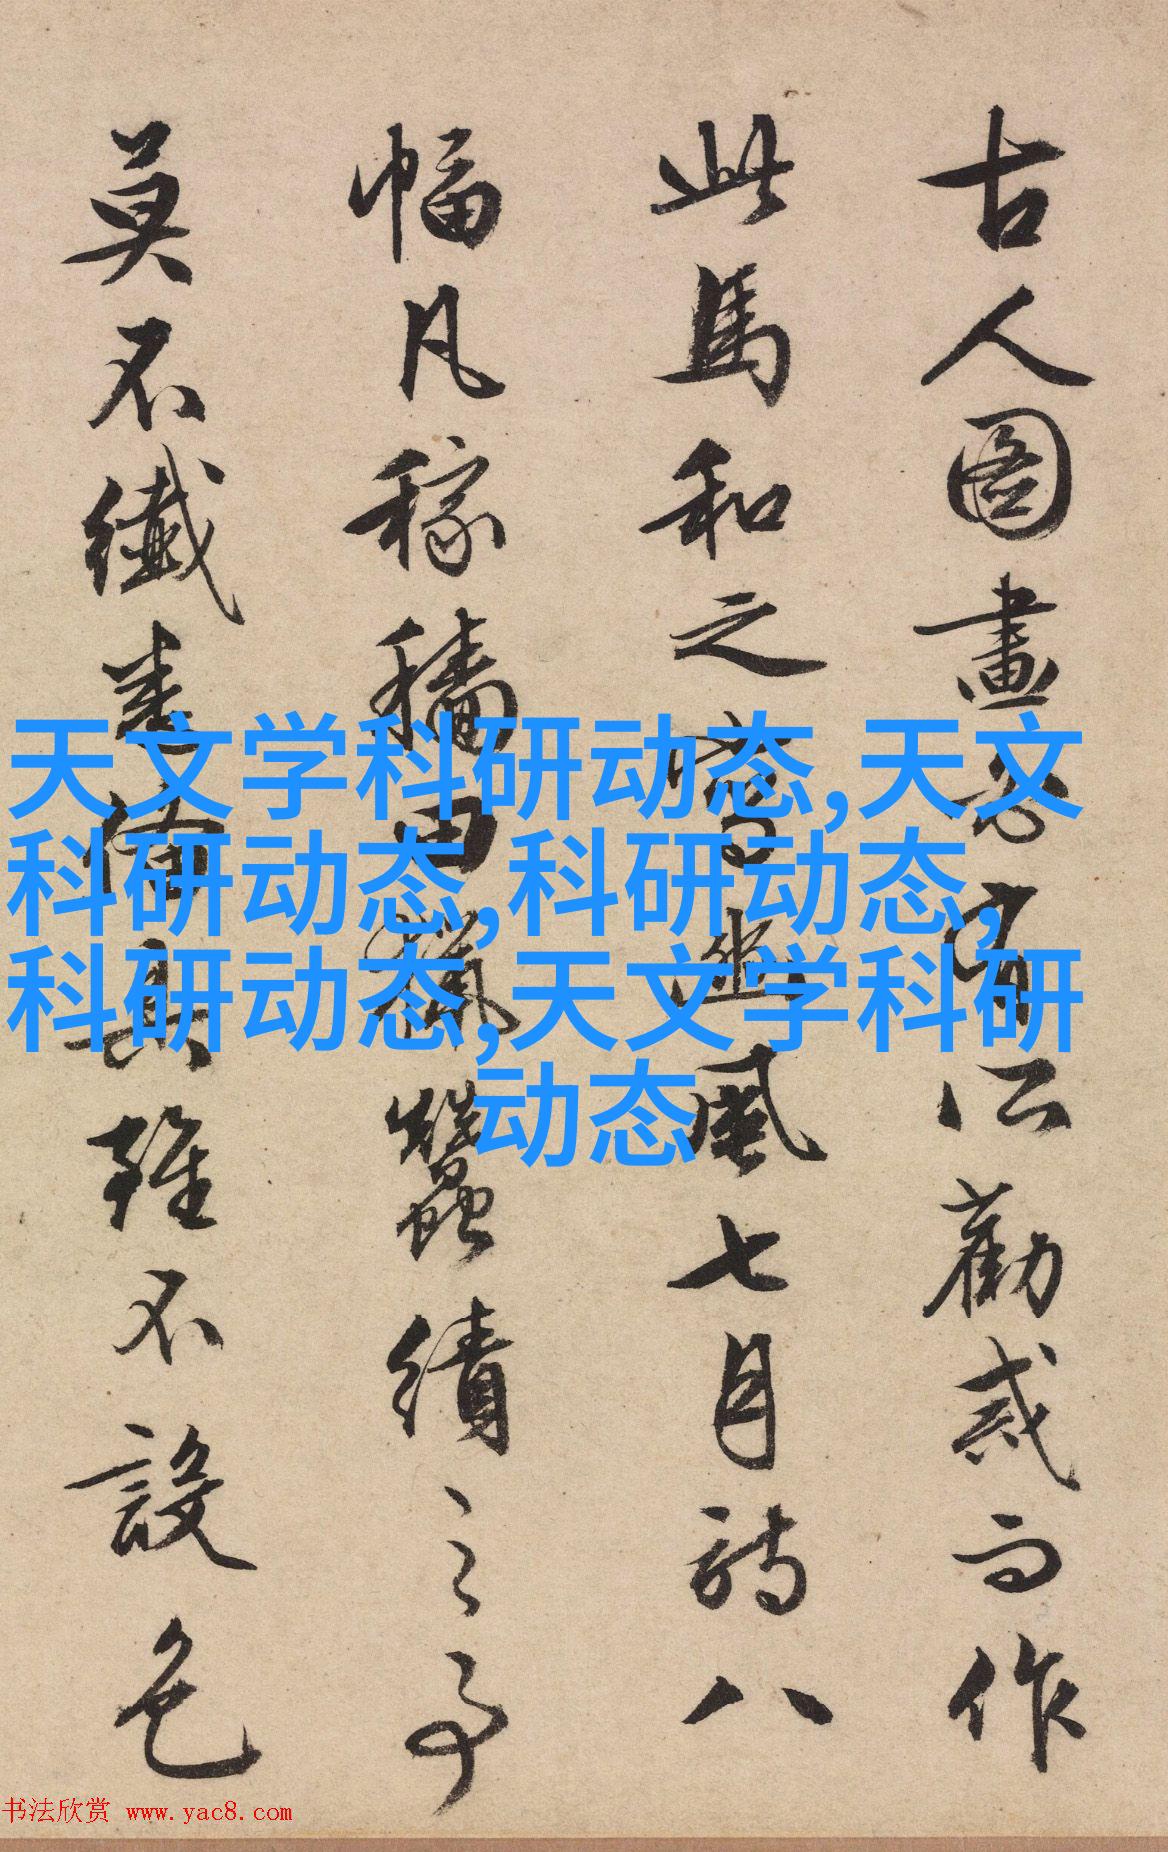 古人图畫皆有所勸戒而作
此馬和之寫豳風七月詩八
幅凡稼穡田獵蠶績之事
莫不纖悉備具雖不設色
天文学科研动态,天文
科研动态,科研动态,
科研动态,天文学科研
动态
书法欣赏 www.yac8.com